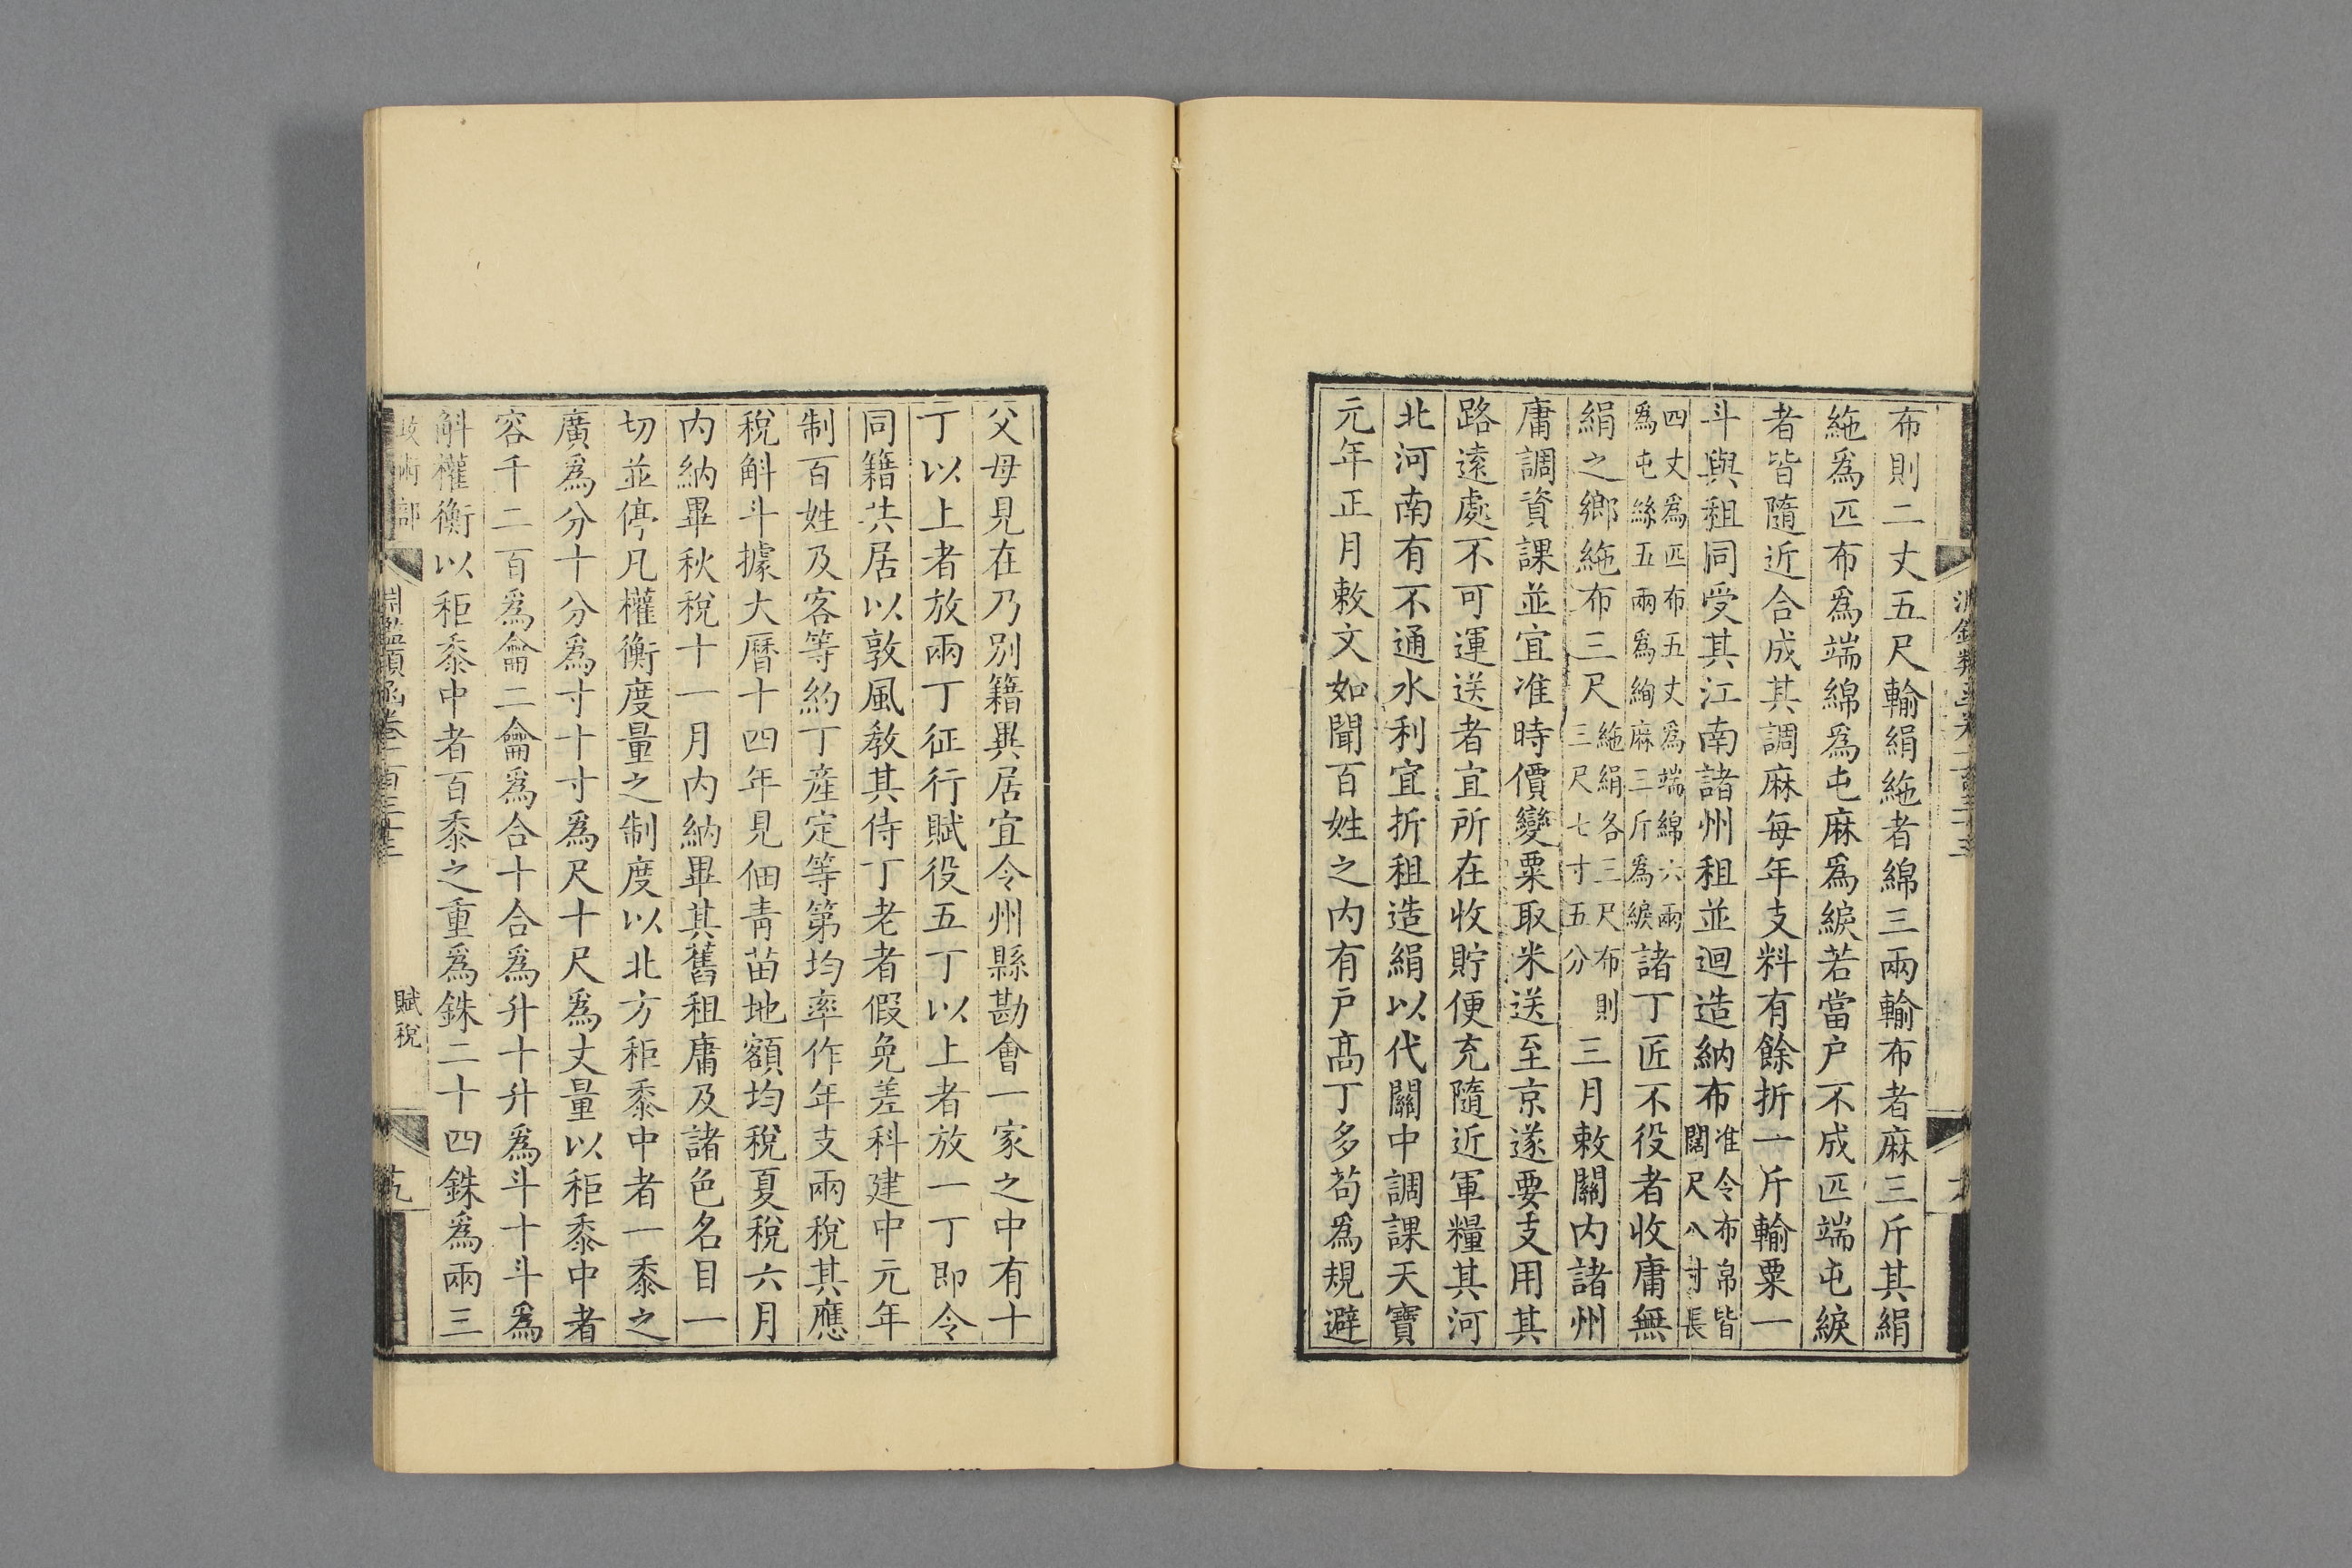 布則二丈五尺輸絹絁者綿三兩輸布者麻三斤其絹
絁爲匹布爲端綿爲屯麻爲綟若當户不成匹端屯綟
者皆隨近合成其調麻每年支料有餘折一斤輸粟一
斗與租同受其江南諸州租並迴造納布准令布帛皆闊尺八寸長
四丈爲匹布五丈爲端綿六兩爲屯絲五兩爲絇麻三斤爲綟諸丁匠不役者收庸無
絹之鄉絁布三尺絁絹各三尺布則三尺七寸五分三月敕關内諸州
庸調資課並宜准時價變粟取米送至京遂要支用其
路遠處不可運送者宜所在收貯便充隨近軍糧其河
北河南有不通水利宜折租造絹以代關中調課天寶
元年正月敕文如聞百姓之内有户高丁多苟爲規避
父母見在乃別籍異居宜令州縣勘會一家之中有十
丁以上者放兩丁征行賦役五丁以上者放一丁即令
同籍共居以敦風教其侍丁老者假免差科建中元年
制百姓及客等約丁産定等第均率作年支兩稅其應
稅斛斗據大曆十四年見佃青苗地額均稅夏稅六月
内納畢秋稅十一月内納畢其舊租庸及諸色名目一
切並停凡權衡度量之制度以北方秬黍中者一黍之
廣爲分十分爲寸十寸爲尺十尺爲丈量以秬黍中者
容千二百爲龠二龠爲合十合爲升十升爲斗十斗爲
斛權衡以秬黍中者百黍之重爲銖二十四銖爲兩三
政術部 淵鑑類函卷一百三十三 賦稅